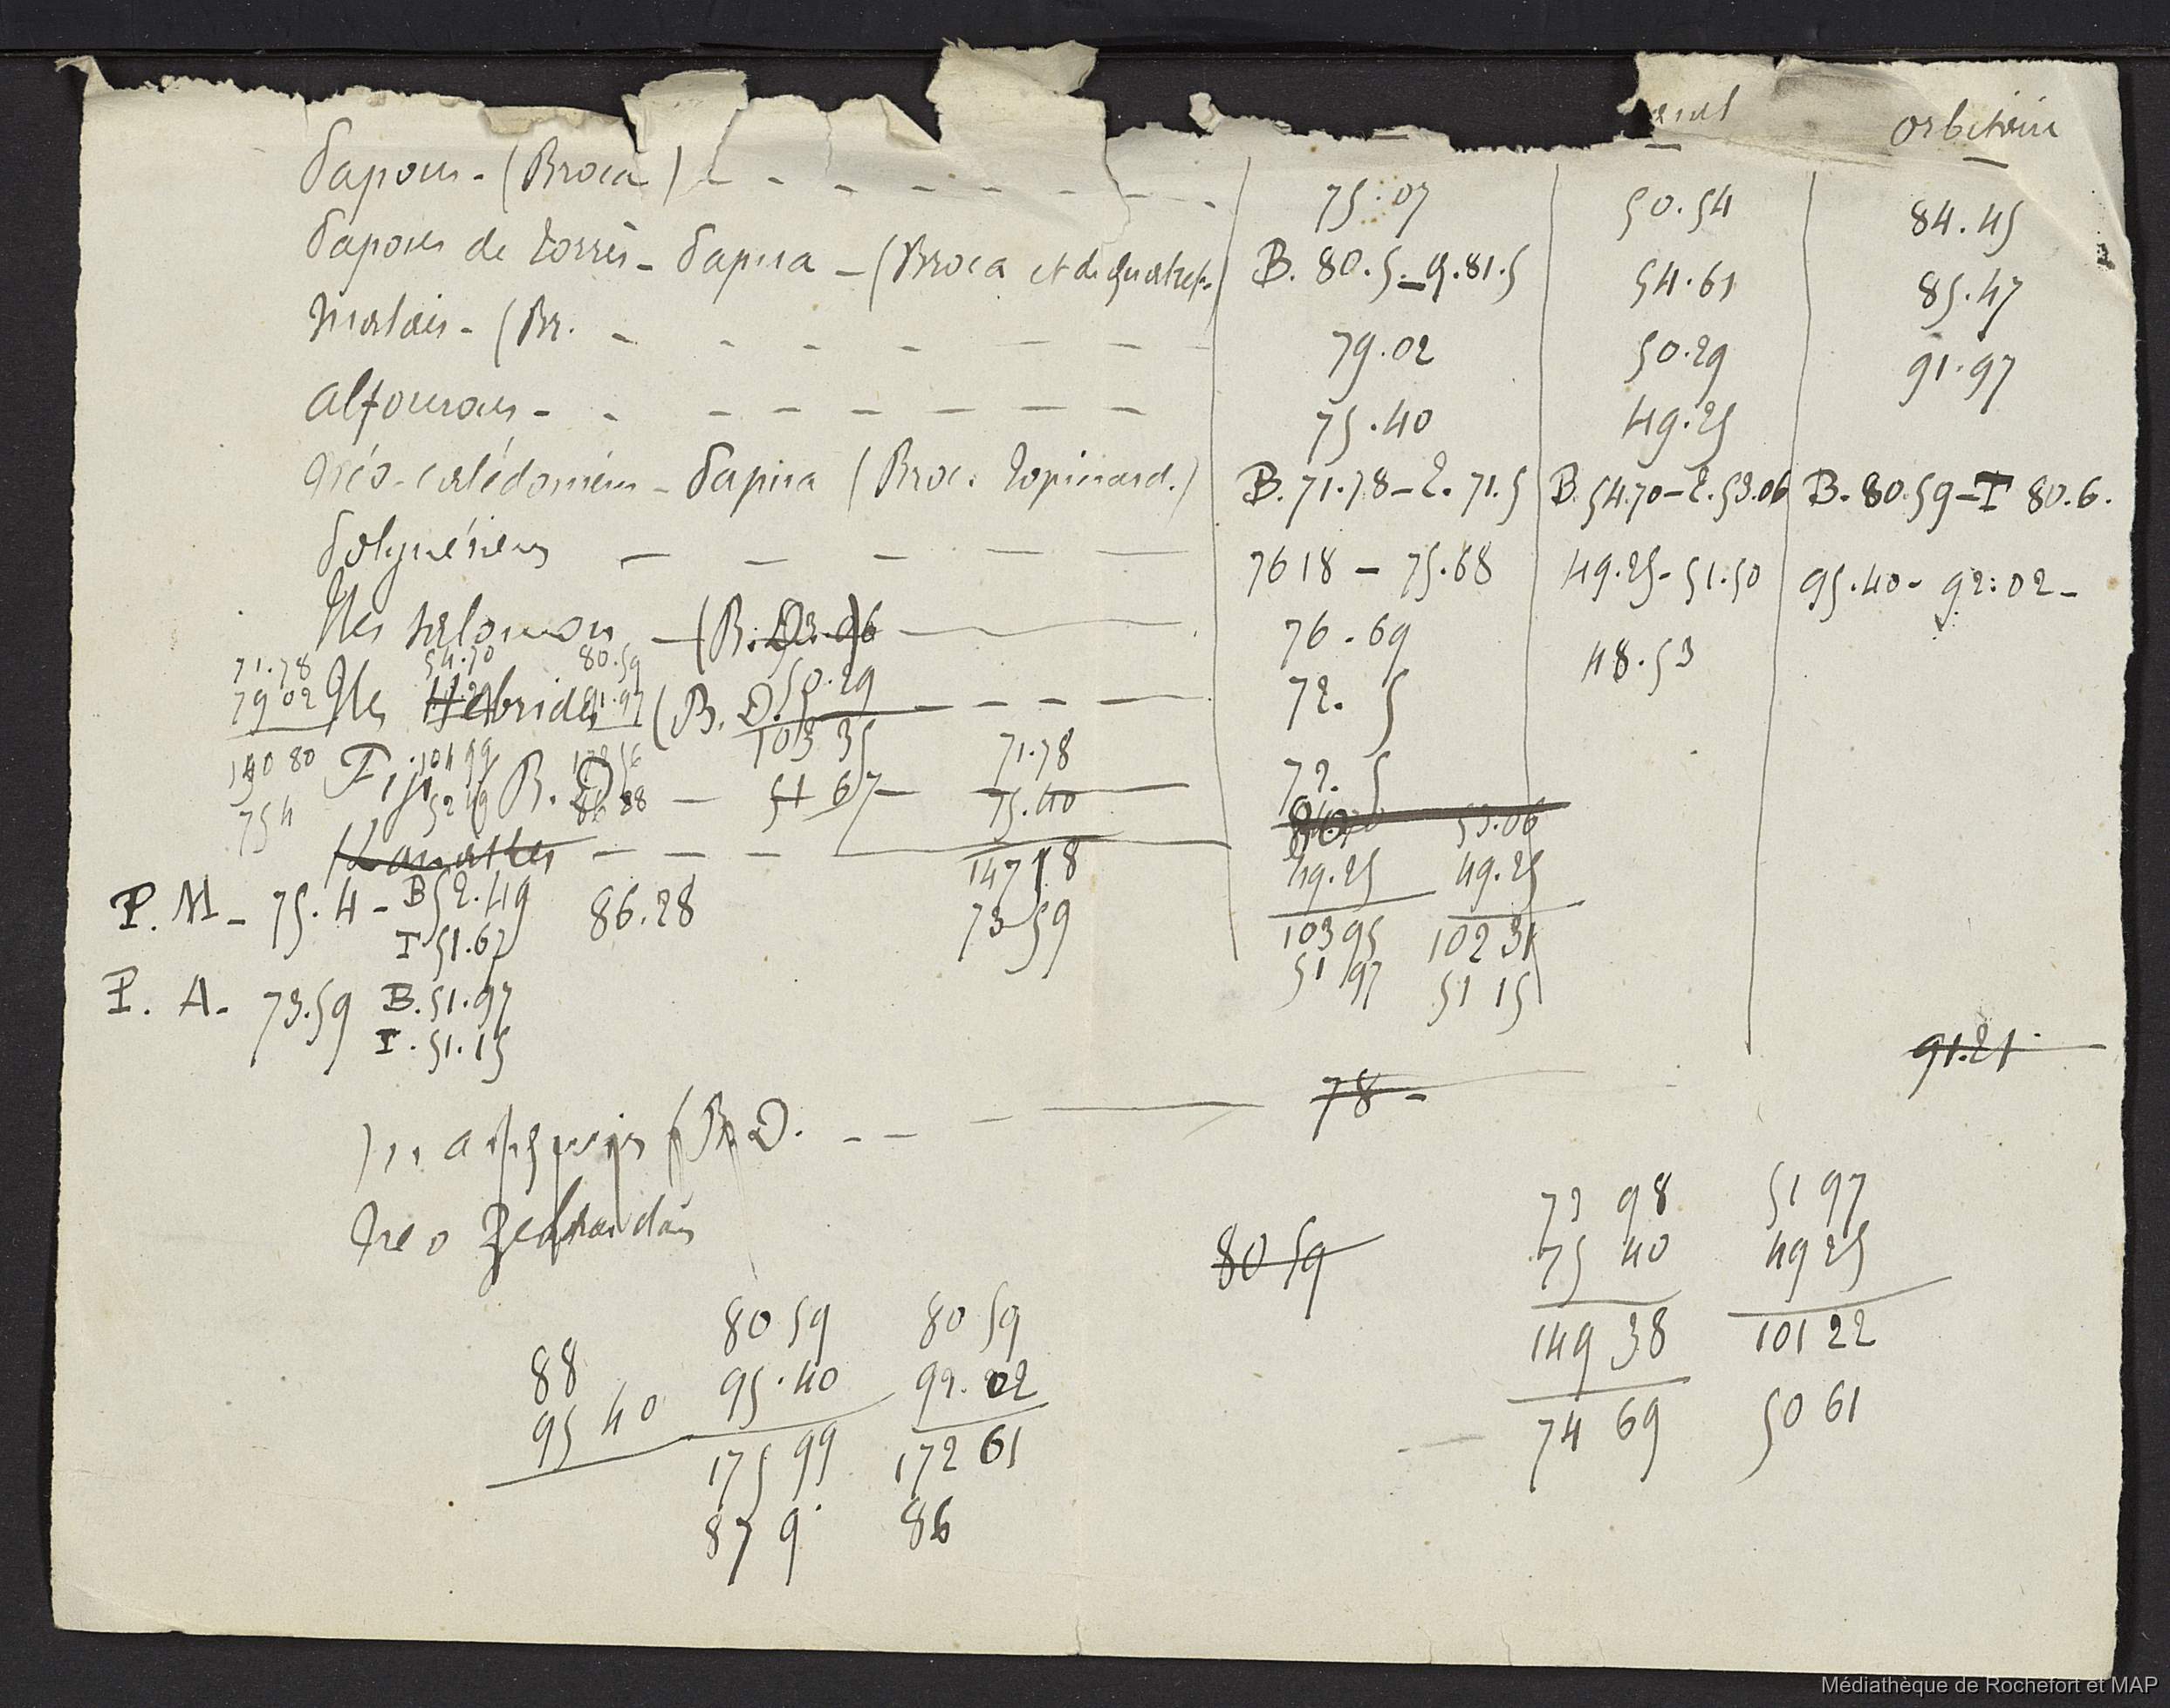 orbitaire
Papous - (Broca) 75.07 50.54 84.45
Papous de Torrès - Papua - (Broca et de Quatref. B. 80.5 - Q. 81.5 54.61 85.47
Malais - (Br. 79.02 50.29 91.97
Alfourous - 75.40 49.25
Néo-calédoniens - Papua (Broc. Topinard.) B. 71.78 - T. 71.5 B. 54.70 - T. 53.06 B. 80.59 - T 80.6.
Polynésiens 76 18 - 75.68 49.25 - 51.50 95.40 - 92.02 -
Iles Salomon - (B. D. 76.69 48.53
71.78 54.70 80.59 50.29
79 02 Iles Hebrides 91.97 (B. D. 72.5
103 35 71.78
150 80 Fiji 104 99 (B. D. 51 67 75.40 72.5
75 4 52 49 86 28 53.06
Kanaktes 147 18 49.25 49.25
P. M - 75.4 - B 52.49 86.28 73 59 103 95 102 31
T. 51.67 51 97 51 15
P. A. 73.59 B. 51.97
T. 51.15
91.21
(B. D. 78 -
73 98 51 97
Neo Zelandais 80 59 75 40 49 25
80 59 80 59 149 38 101 22
88 95.40 92.02 74 69 50 61
95 40 175 99 172 61
87 9 86
Médiathèque de Rochefort et MAP